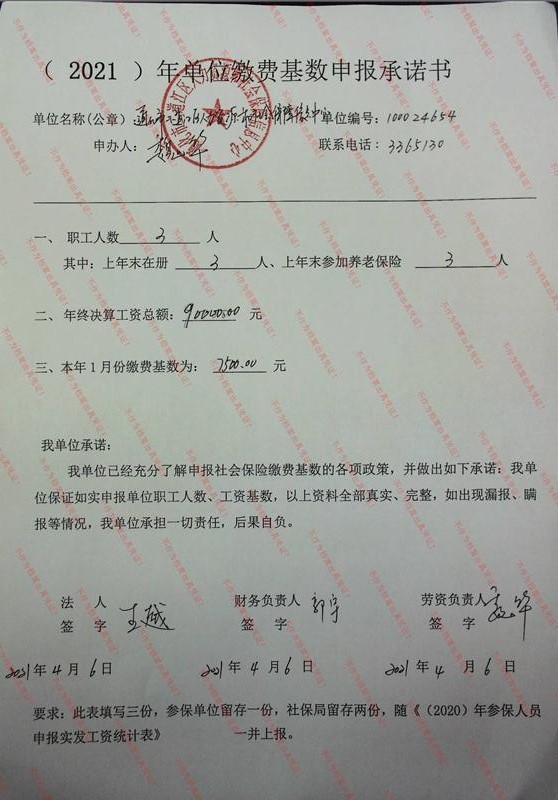 （ 2021 ）年单位缴费基数申报承诺书
单位名称(公章) 单位编号: 100024654
申办人: 联系电话: 3365130
一、 职工人数 3 人
其中: 上年末在册 3 人、上年末参加养老保险 3 人
二、 年终决算工资总额: 90000.00 元
三、本年 1 月份缴费基数为: 7500.00 元
我单位承诺:
我单位已经充分了解申报社会保险缴费基数的各项政策，并做出如下承诺: 我单
位保证如实申报单位职工人数、工资基数，以上资料全部真实、完整，如出现漏报、瞒
报等情况，我单位承担一切责任，后果自负。
法 人 财务负责人 劳资负责人
签 字 王越 签 字 签 字
2021 年 4 月 6 日 2021 年 4 月 6 日 2021 年 4 月 6 日
要求: 此表填写三份，参保单位留存一份，社保局留存两份，随《（2020）年参保人员
申报实发工资统计表》 一并上报。